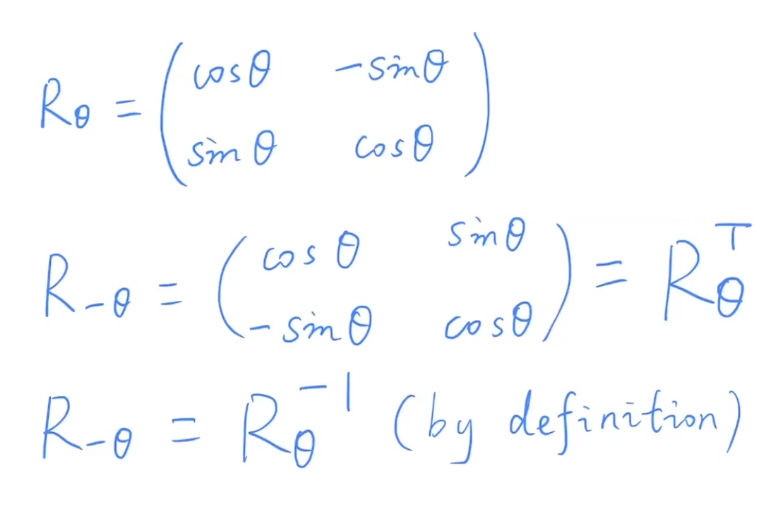 R_θ = \begin{pmatrix} cosθ & -sinθ \\ sinθ & cosθ \end{pmatrix}
R_{-θ} = \begin{pmatrix} cosθ & sinθ \\ -sinθ & cosθ \end{pmatrix} = R_θ^T
R_{-θ} = R_θ^{-1} (by definition)